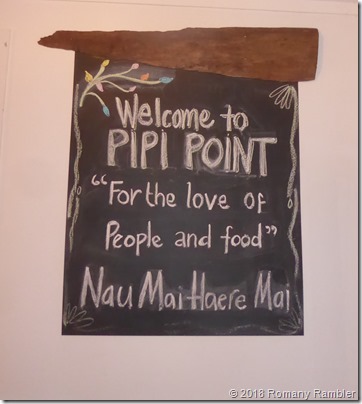 Welcome to
PIPI POINT
"For the love of
People and food"
Nau Mai Haere Mai
© 2018 Romany Rambler